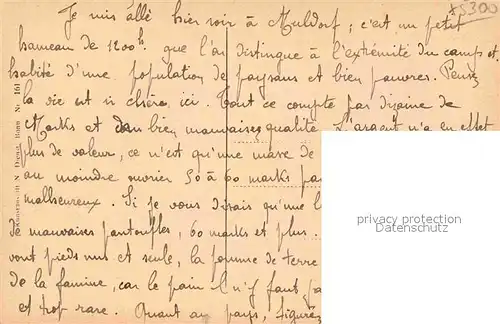 Je suis allé hier soir à Muldorf ; c'est un petit
hameau de 1200 h. que l'on distingue à l'extrémité du camp et
habité d'une population de paysans et bien pauvres. Pensez
la vie est si chère ici. Tout ce compte par dizaine de
Marks et d'un bien mauvaises qualité. L'argent n'a en effet
plus de valeur, ce n'est qu'une mare de
au moindre ouvrier 50 à 60 marks par
malheureux. Si je vous disais qu'une
de mauvaises pantoufles, 60 marks et plus.
vont pieds nus et seule, la pomme de terre
de la famine, car le pain il n'y faut pas
et trop rare. Quant au pays, figurez
5300
161
privacy protection
www.oldthing.de